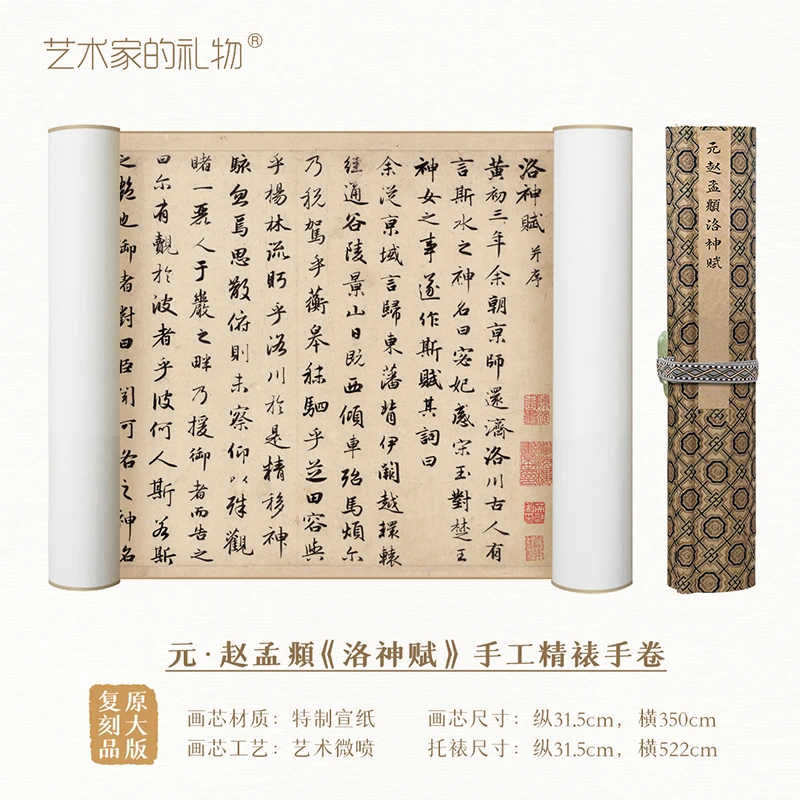 艺术家的礼物®
洛神賦 并序
黄初三年余朝京師還濟洛川古人有
言斯水之神名曰宓妃感宋玉對楚王
神女之事遂作斯賦其詞曰
余従京域言歸東藩背伊闕越轘轅
經通谷陵景山日既西傾車殆馬煩尔
乃税駕乎蘅皋秣駟乎芝田容與
乎楊林流眄乎洛川於是精移神
駭忽焉思散俯則未察仰以殊觀
睹一麗人于巖之畔乃援御者而告之
曰尔有覿於彼者乎彼何人斯若斯
之艷也御者對曰臣聞河洛之神名
元赵孟頫洛神赋
元·赵孟頫《洛神赋》手工精裱手卷
原大版
复刻品
画芯材质：特制宣纸
画芯尺寸：纵31.5cm，横350cm
画芯工艺：艺术微喷
托裱尺寸：纵31.5cm，横522cm